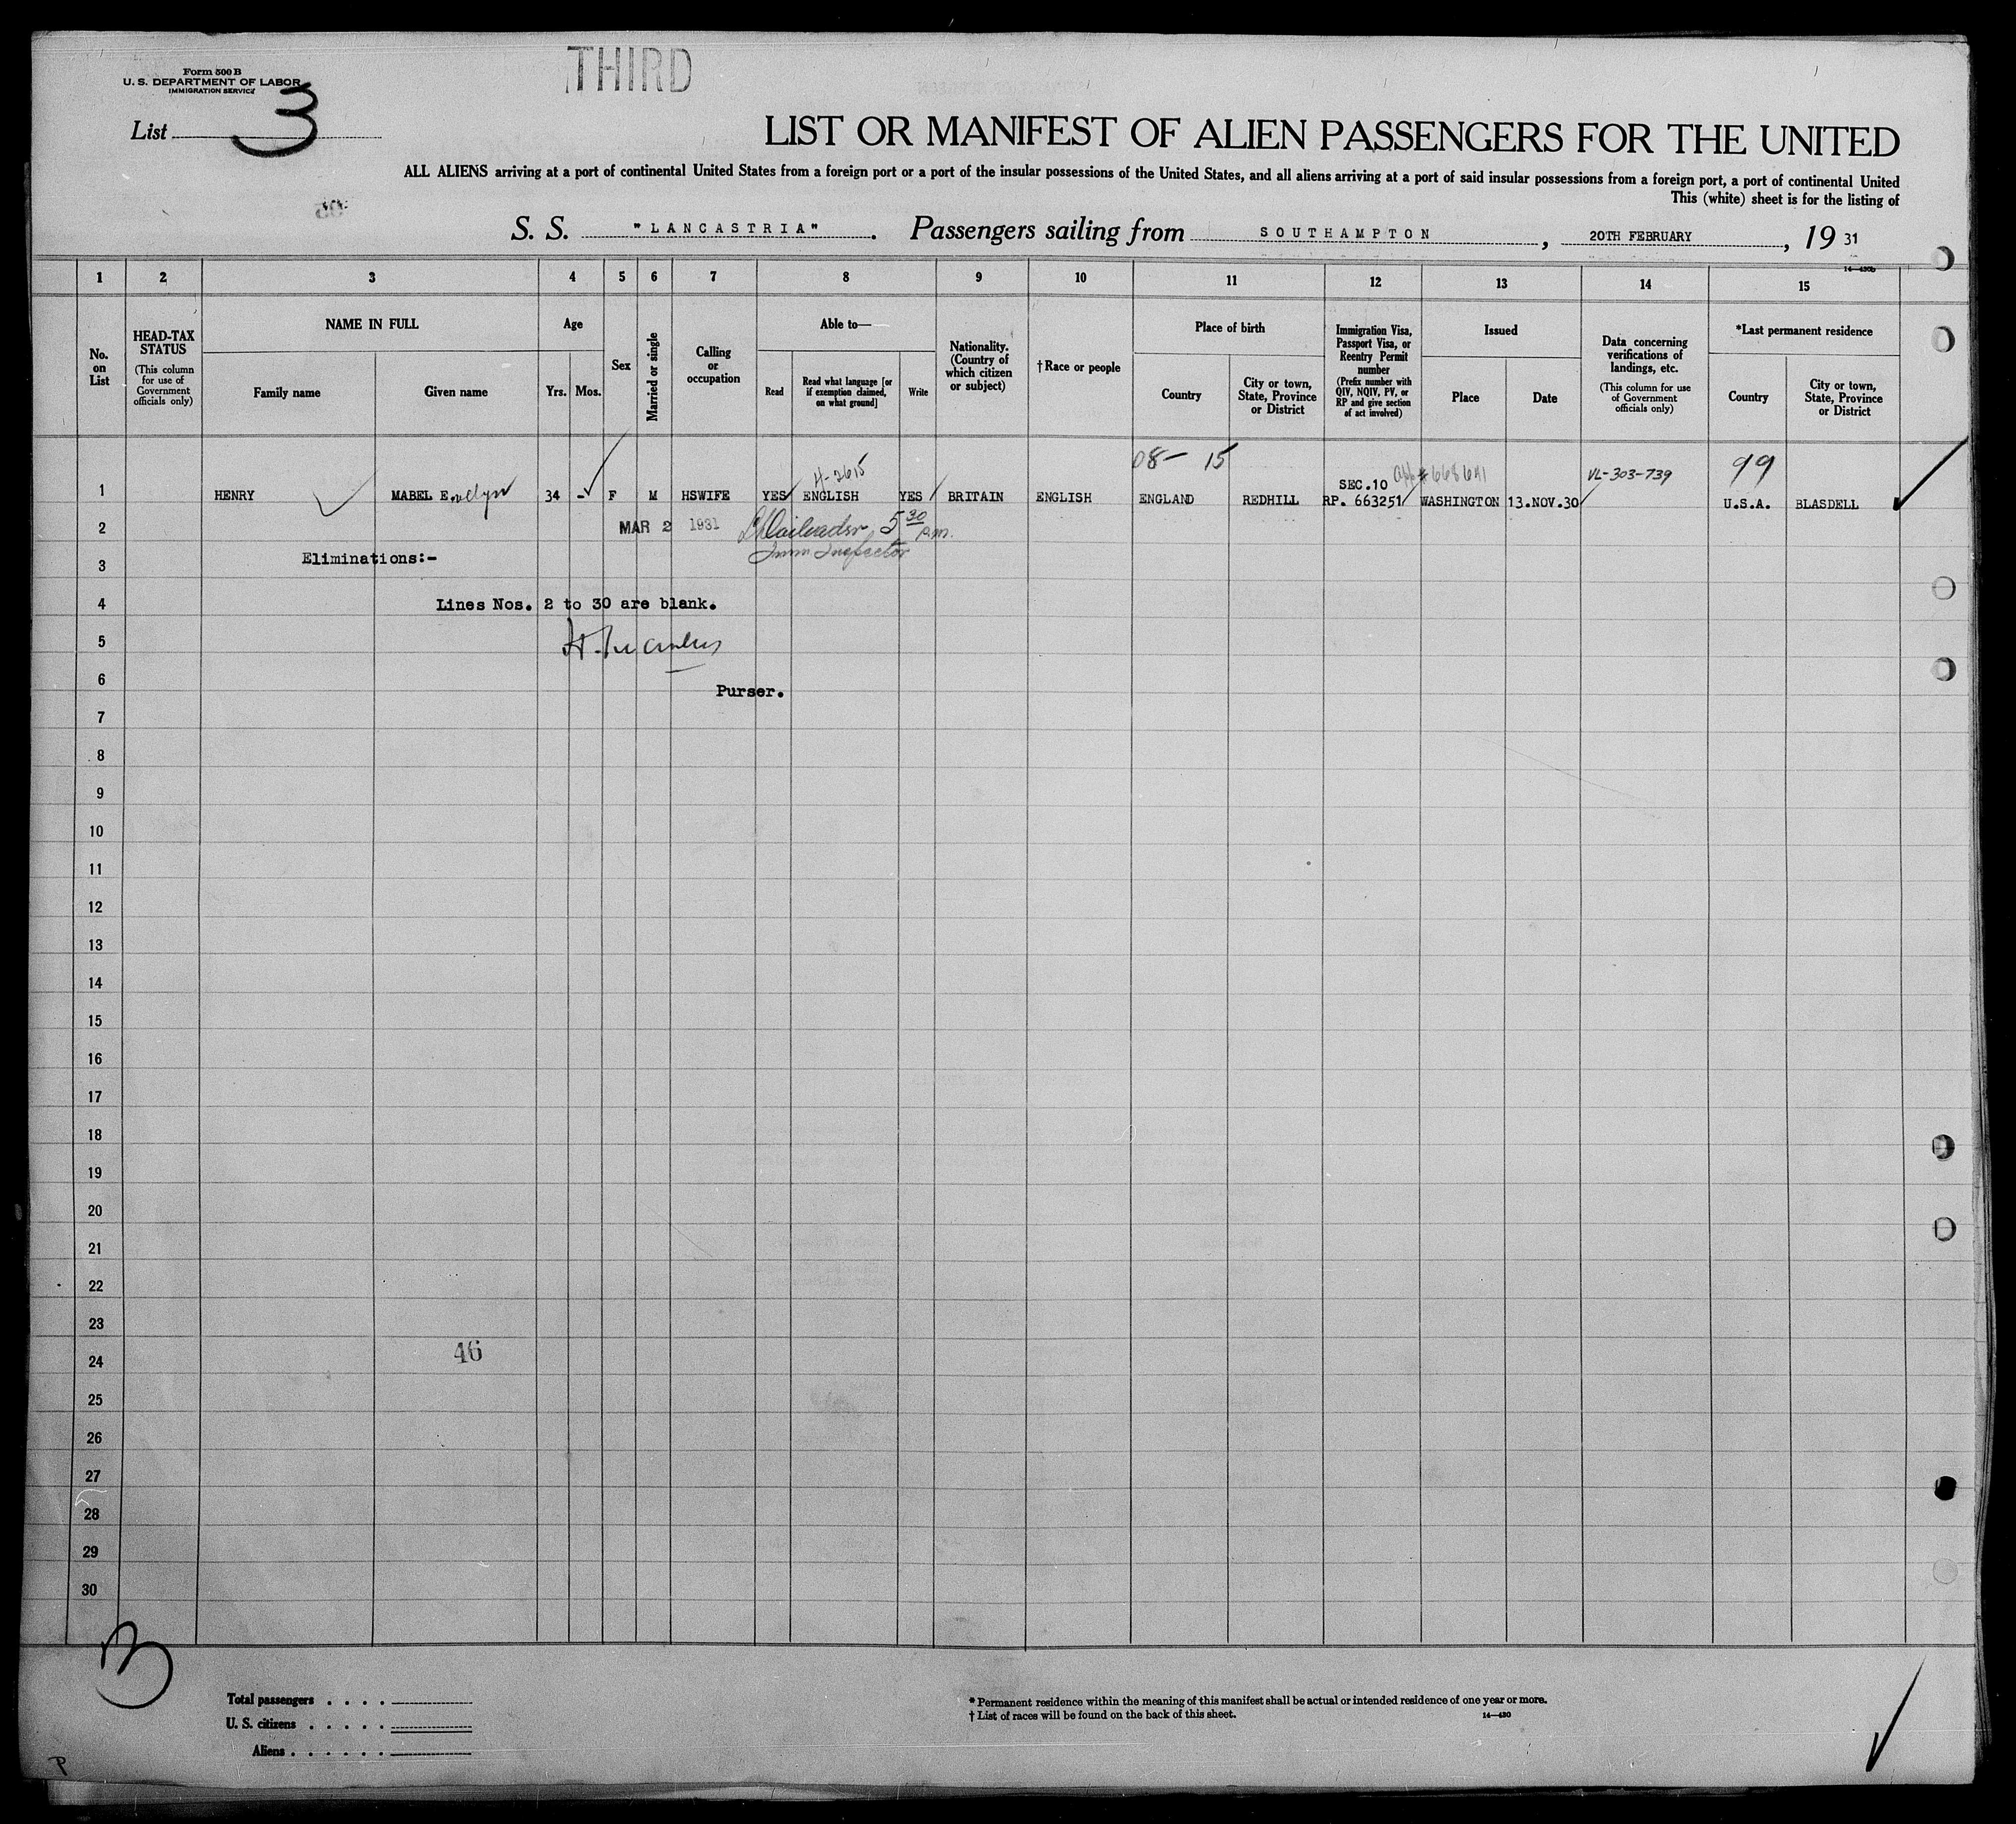 THIRD
Form 500 B
U. S. DEPARTMENT OF LABOR
IMMIGRATION SERVICE
List 3
LIST OR MANIFEST OF ALIEN PASSENGERS FOR THE UNITED
ALL ALIENS arriving at a port of continental United States from a foreign port or a port of the insular possessions of the United States, and all aliens arriving at a port of said insular possessions from a foreign port, a port of continental United
This (white) sheet is for the listing of
S. S. "LANCASTRIA". Passengers sailing from SOUTHAMPTON, 20TH FEBRUARY, 19 31
14—430b
1 2 3 4 5 6 7 8 9 10 11 12 13 14 15
No. on List
HEAD-TAX STATUS
(This column for use of Government officials only)
NAME IN FULL
Family name
Given name
Age
Yrs.
Mos.
Sex
Married or single
Calling or occupation
Able to—
Read
Read what language [or if exemption claimed, on what ground]
Write
Nationality. (Country of which citizen or subject)
†Race or people
Place of birth
Country
City or town, State, Province or District
Immigration Visa, Passport Visa, or Reentry Permit number
(Prefix number with QIV, NQIV, PV, or RP and give section of act involved)
Issued
Place
Date
Data concerning verifications of landings, etc.
(This column for use of Government officials only)
*Last permanent residence
Country
City or town, State, Province or District
H-2615 08- 15 SEC.10 app # 668641 VL-303-739 99
1 HENRY MABEL Evelyn 34 - F M HSWIFE YES ENGLISH YES BRITAIN ENGLISH ENGLAND REDHILL RP. 663251 WASHINGTON 13.NOV.30 U.S.A. BLASDELL
2 MAR 2 1931 5 30 P.M.
Imm Inspector
3 Eliminations:-
4 Lines Nos. 2 to 30 are blank.
5
6 Purser.
7
8
9
10
11
12
13
14
15
16
17
18
19
20
21
22
23
46
24
25
26
27
28
29
30
3
Total passengers . . . .
U. S. citizens . . . . .
Aliens . . . . . .
* Permanent residence within the meaning of this manifest shall be actual or intended residence of one year or more.
† List of races will be found on the back of this sheet.
14—430
P